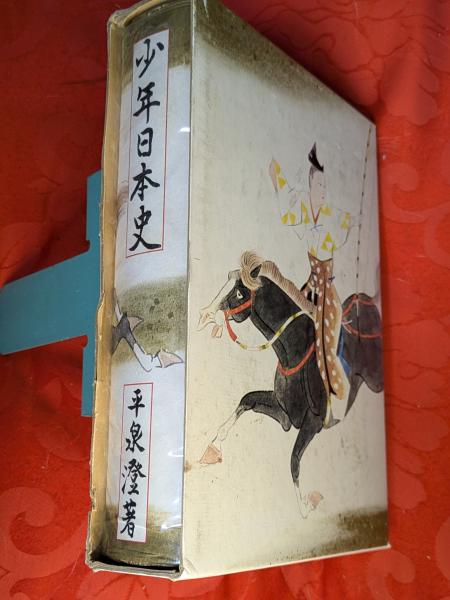 少年日本史
平泉澄著